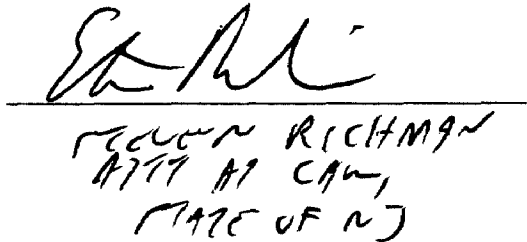 STEVEN RICHMAN
ATTY AT LAW,
STATE OF NJ